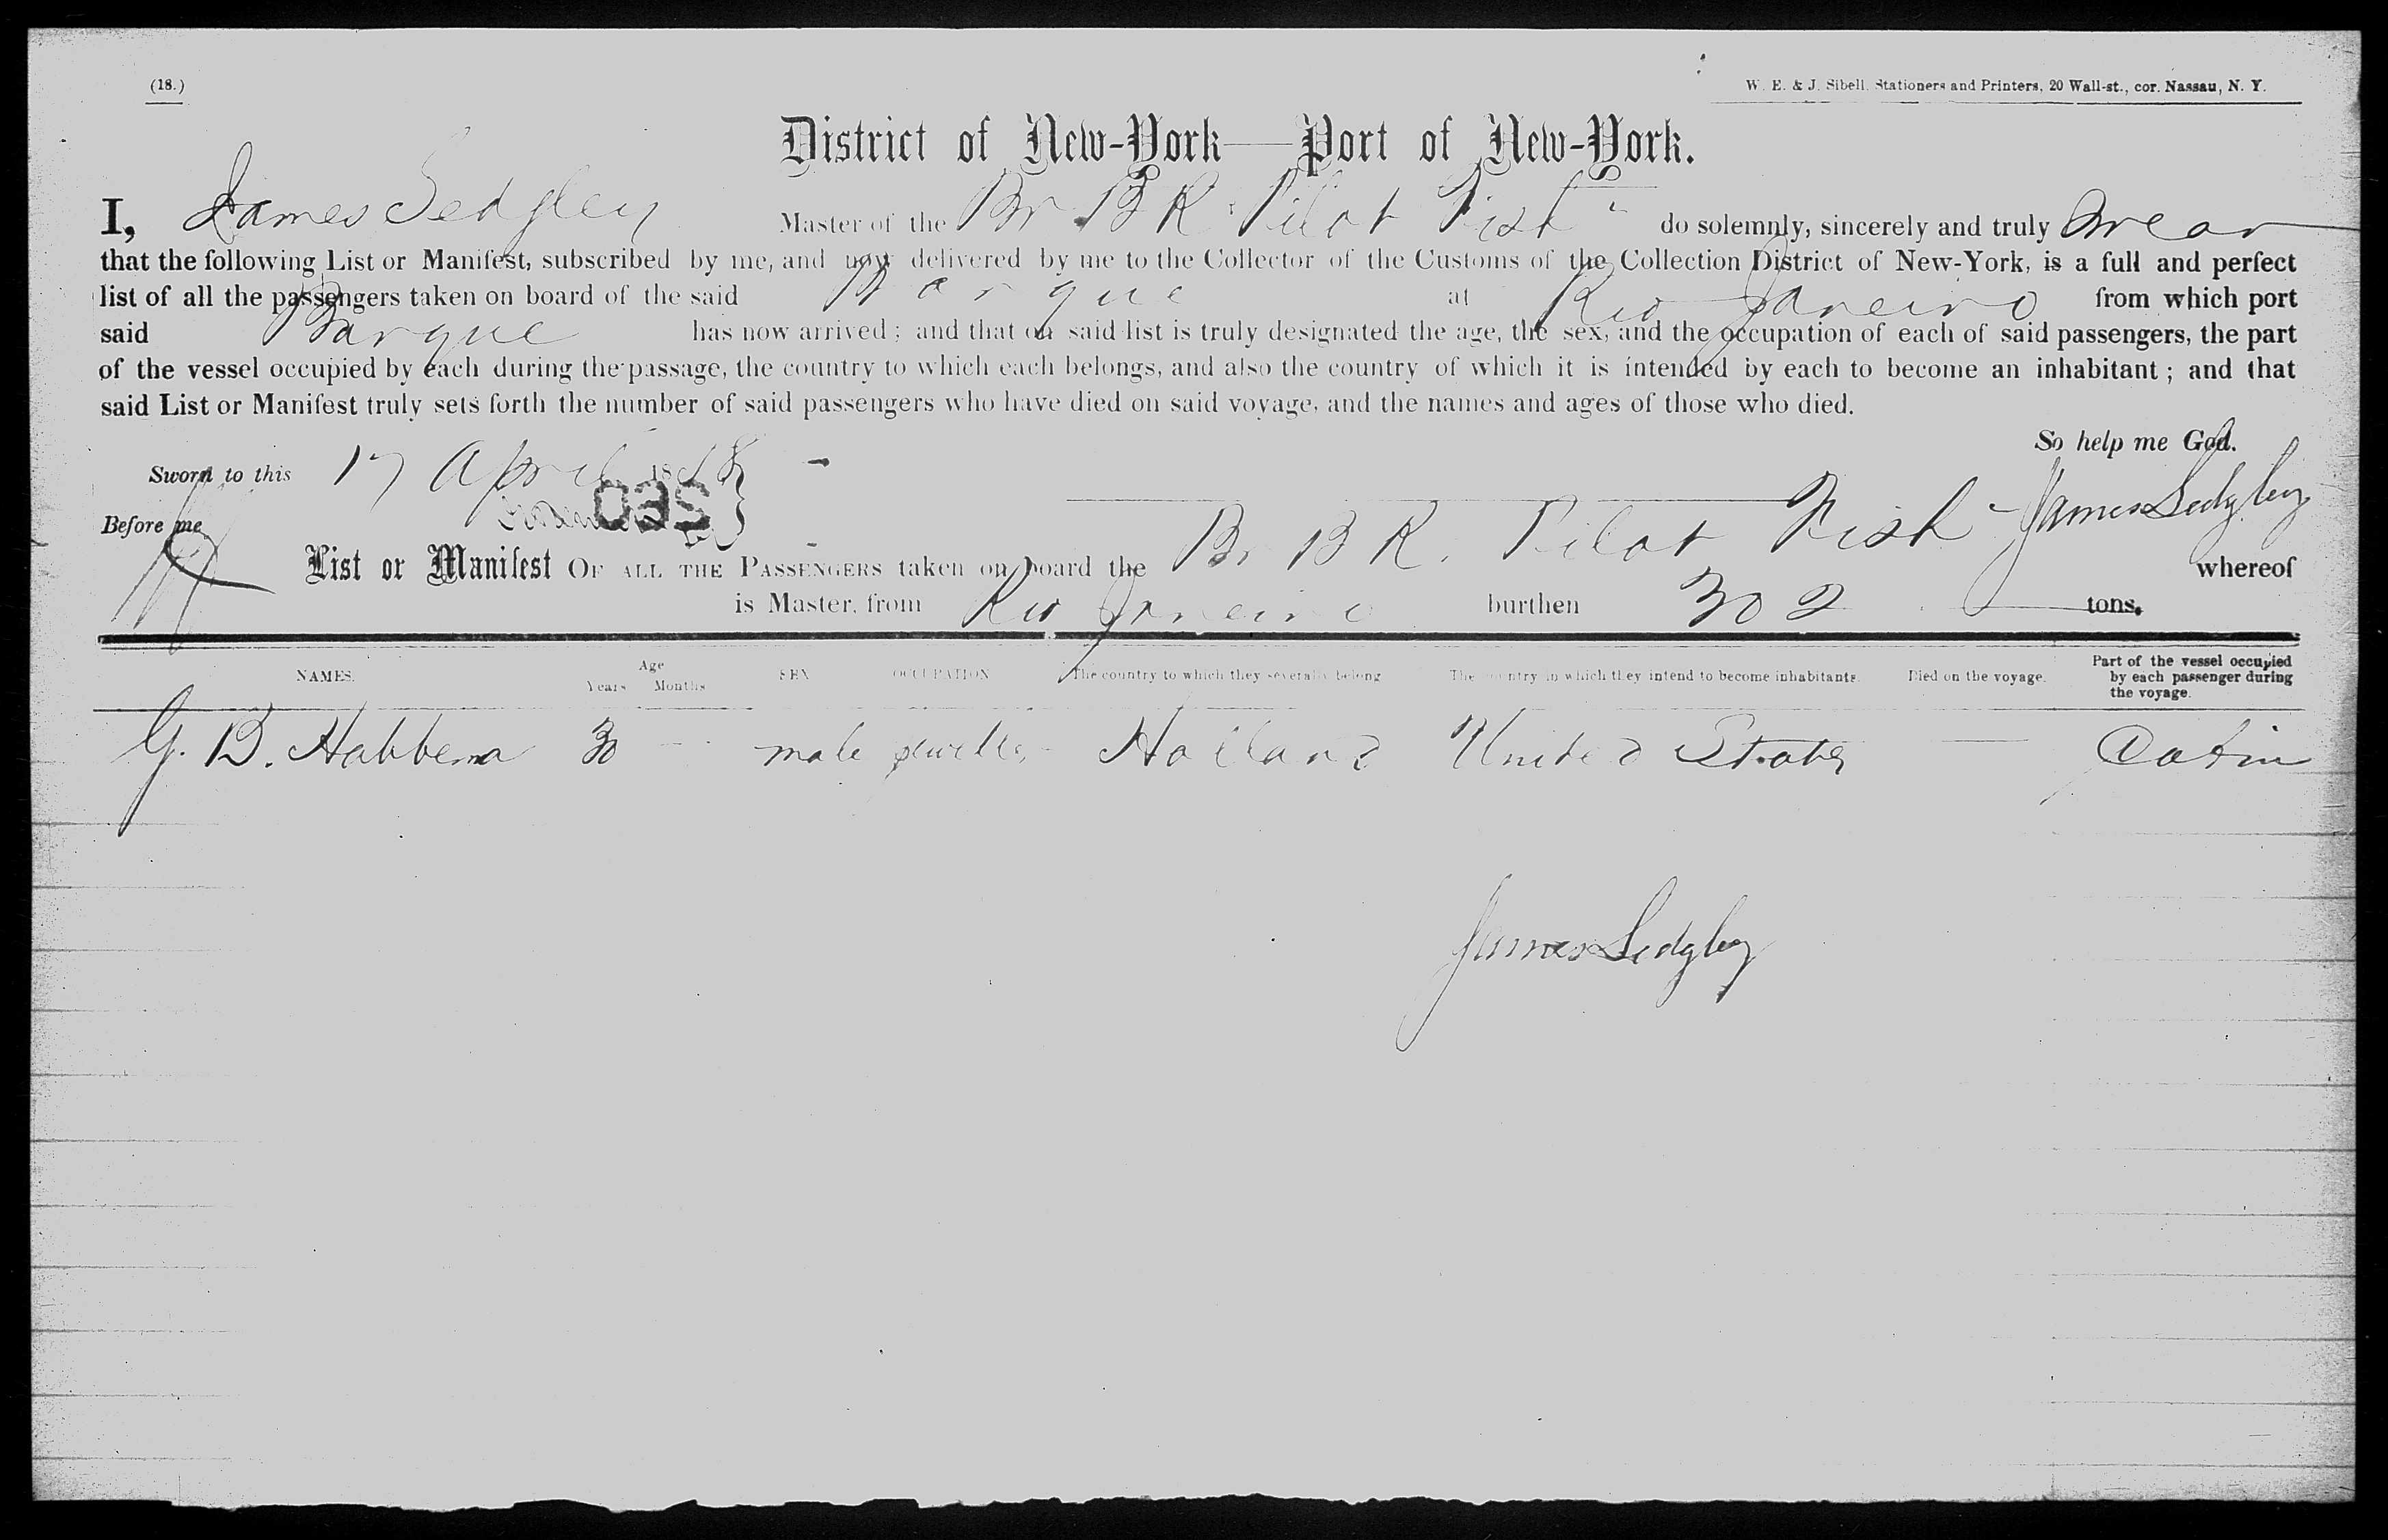 (18.)
W. E. & J. Sibell, Stationers and Printers, 20 Wall-st., cor. Nassau, N. Y.
District of New-York—Port of New-York.
I, James Sedgley Master of the Br BK "Pilot Fish" do solemnly, sincerely and truly swear
that the following List or Manifest, subscribed by me, and now delivered by me to the Collector of the Customs of the Collection District of New-York, is a full and perfect
list of all the passengers taken on board of the said Barque at Rio Janeiro from which port
said Barque has now arrived; and that on said list is truly designated the age, the sex, and the occupation of each of said passengers, the part
of the vessel occupied by each during the passage, the country to which each belongs, and also the country of which it is intended by each to become an inhabitant; and that
said List or Manifest truly sets forth the number of said passengers who have died on said voyage, and the names and ages of those who died.
So help me God.
Sworn to this 17 April 1868
James Sedgley
Before me
List or Manifest OF ALL THE PASSENGERS taken on board the Br BK. Pilot Fish whereof
is Master, from Rio Janeiro burthen 302 tons.
NAMES. Age Years Months SEX OCCUPATION The country to which they severally belong The country in which they intend to become inhabitants. Died on the voyage. Part of the vessel occupied by each passenger during the voyage.
G. B. Habbema 30 male Jeweller Holland United States — Cabin
James Sedgley